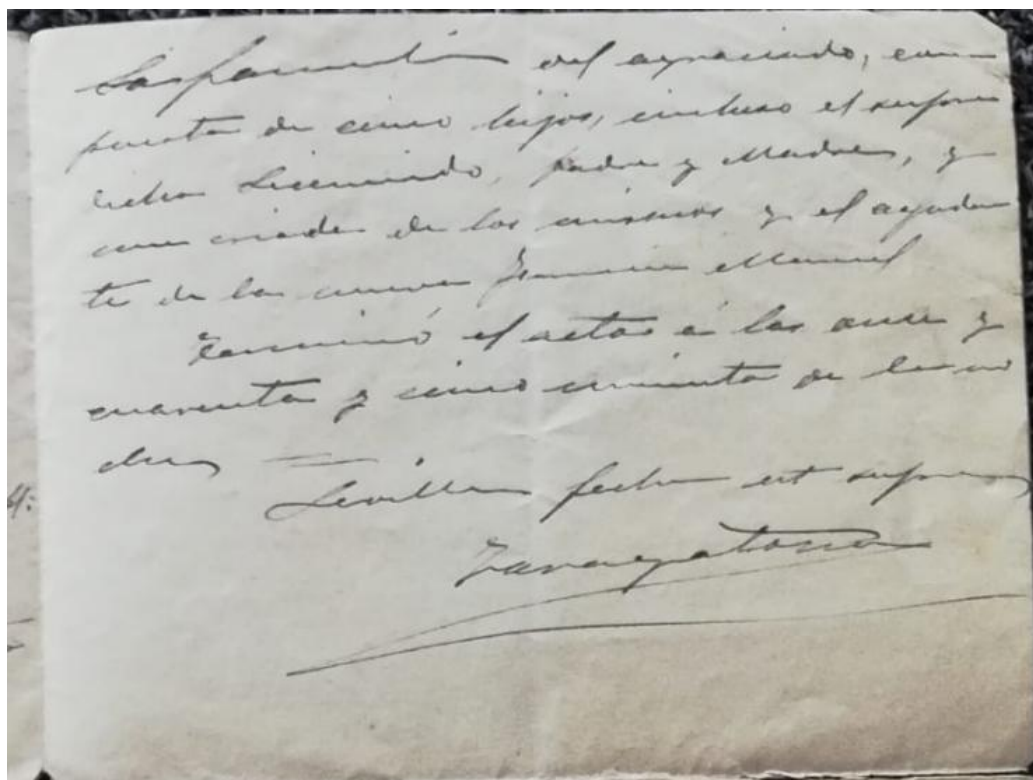 La familia del agraciado, com
puesta de cinco hijos, incluso el supra
dicho Licenciado, padre y Madre, y
una criada de los mismos y el ayudan
te de la
Terminó el acto á las once y
cuarenta y cinco minutos de la no
che
Sevilla fecha ut supra